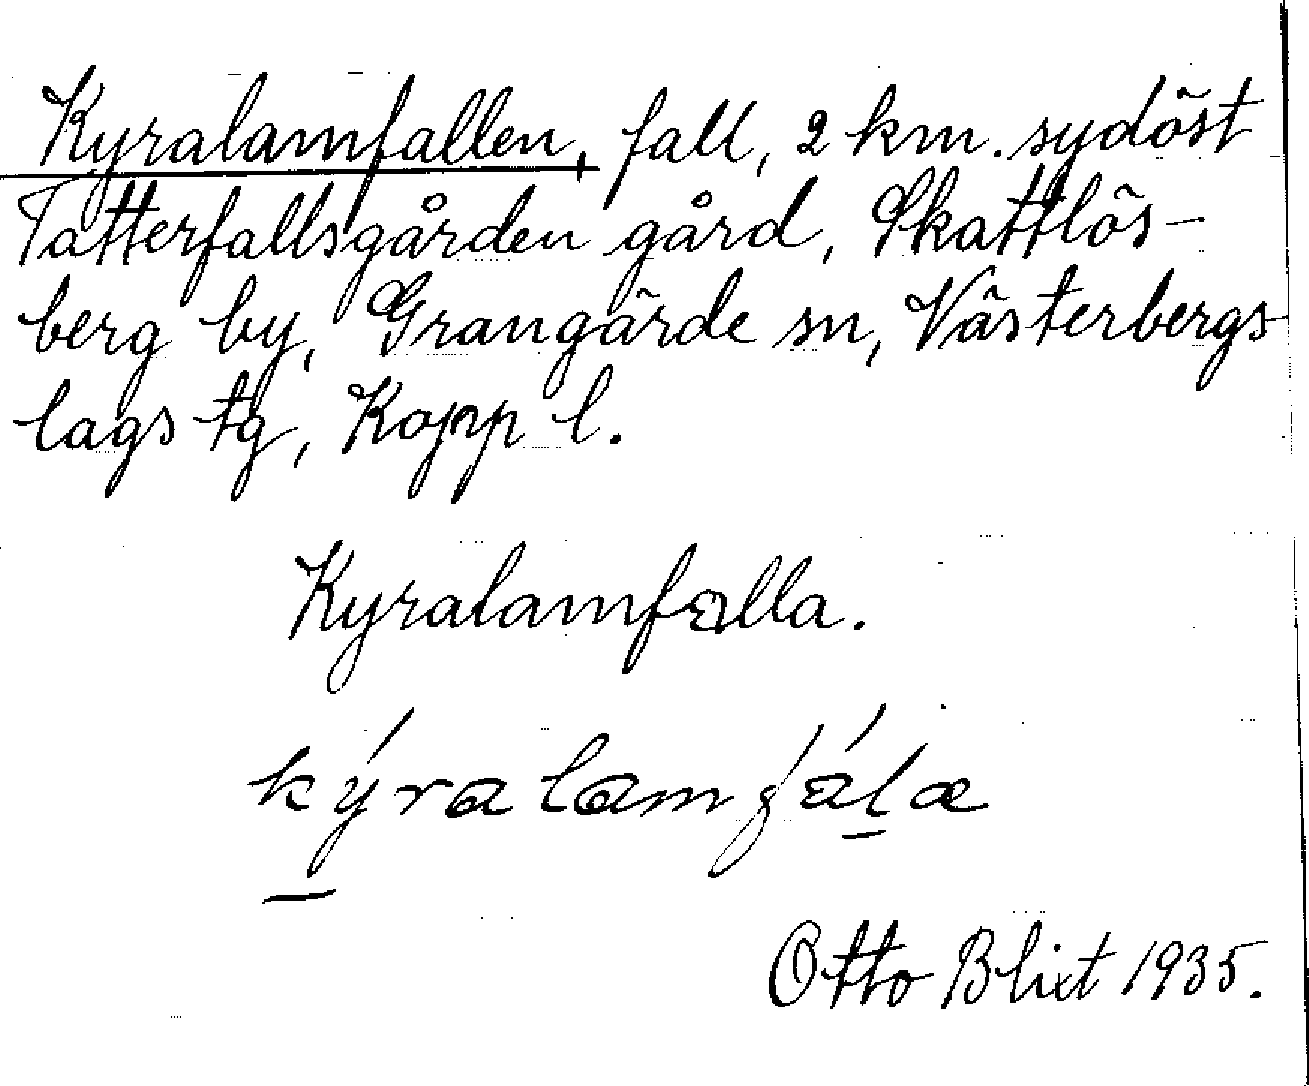 Kyralamfallen, fall, 2 km. sydöst
Tatterfallsgården gård, Skattlös-
berg by, Grangärde sn, Västerbergs
lags tg, Kopp l.
Kyralamfalla.
ký̱ralamfáḻa
Otto Blixt 1935.